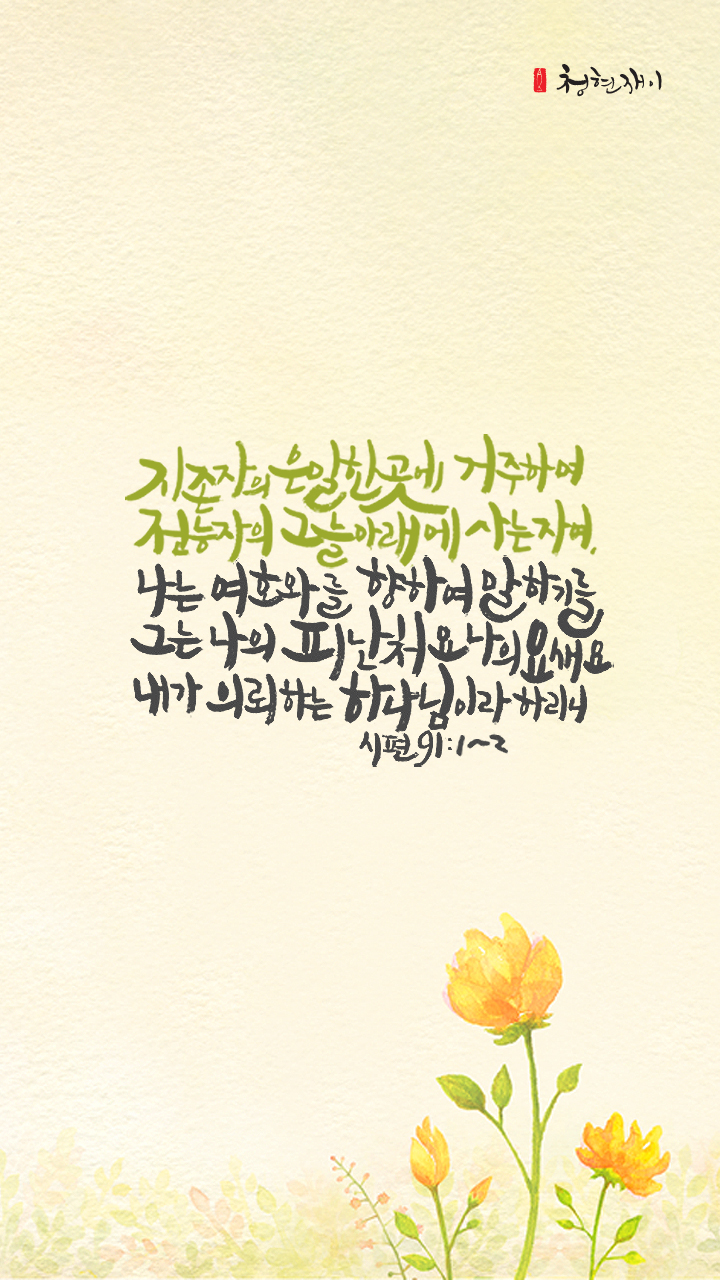 청현재이
지존자의 은밀한 곳에 거주하며
전능자의 그늘 아래에 사는 자여,
나는 여호와를 향하여 말하기를
그는 나의 피난처요 나의 요새요
내가 의뢰하는 하나님이라 하리니
시편 91:1~2